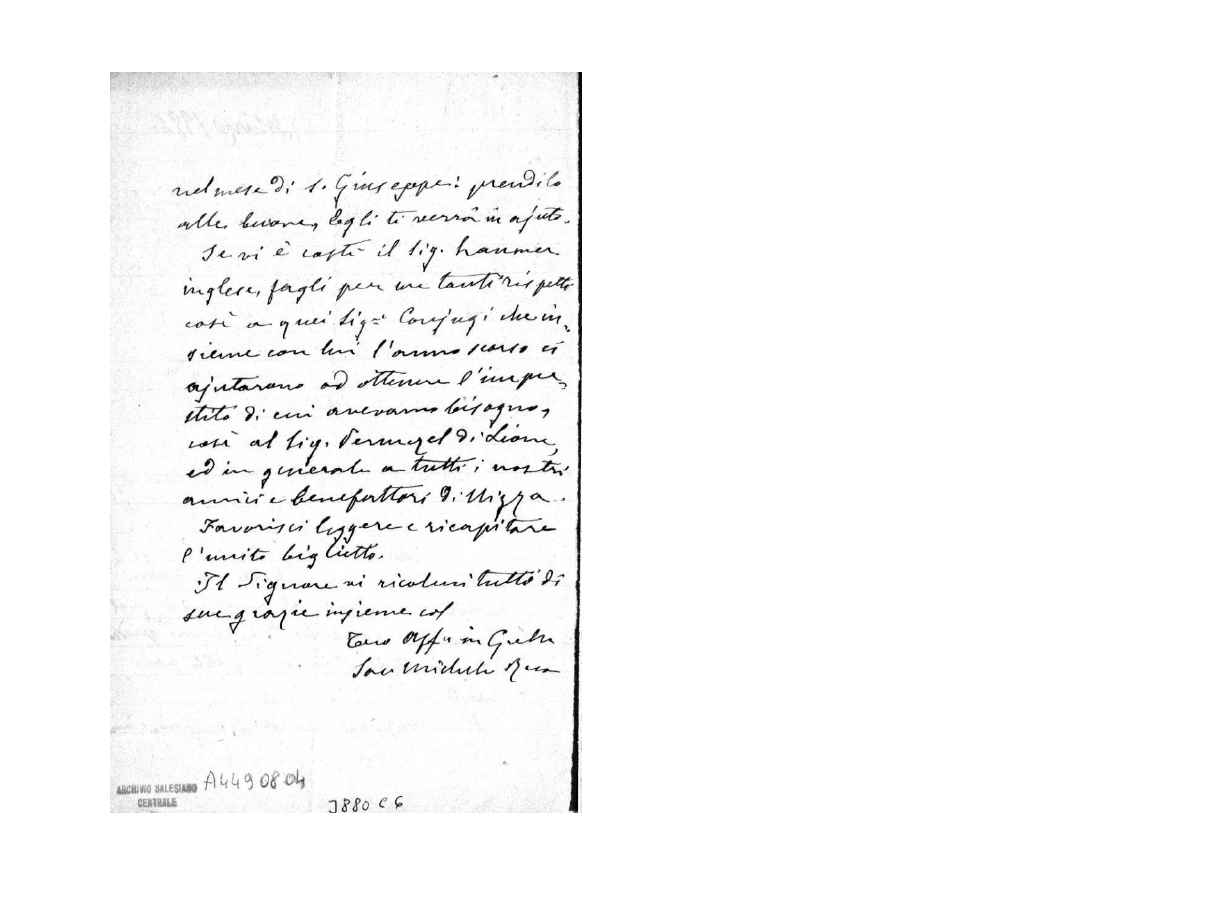 nel mese di S. Giuseppe: prendilo
alle buone, egli ti verrà in ajuto.
Se vi è costì il Sig. Hanmer
inglese, fagli per me tanti rispetti
così a quei Sigri Conjugi che in-
sieme con lui l'anno scorso ci
ajutarono ad ottenere l'impre-
stito di cui avevamo bisogno,
così al Sig. Vermezel di Lione,
ed in generale a tutti i nostri
amici e benefattori di Nizza.
Favorisci leggere e ricapitare
l'unito biglietto.
Il Signore vi ricolmi tutti di
sue grazie insieme col
Tuo Affo in G.
Sac Michele Rua
A4490804
ARCHIVIO SALESIANO
CENTRALE
3880 C 6